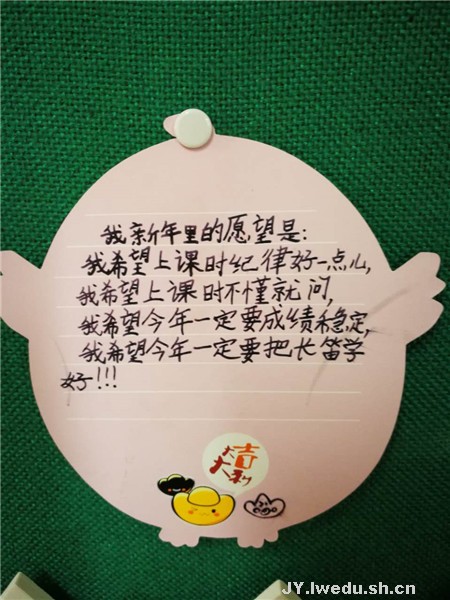 我新年里的愿望是:
我希望上课时纪律好一点儿,
我希望上课时不懂就问,
我希望今年一定要成绩稳定,
我希望今年一定要把长笛学
好!!!
大吉
大利
JY.lwedu.sh.cn